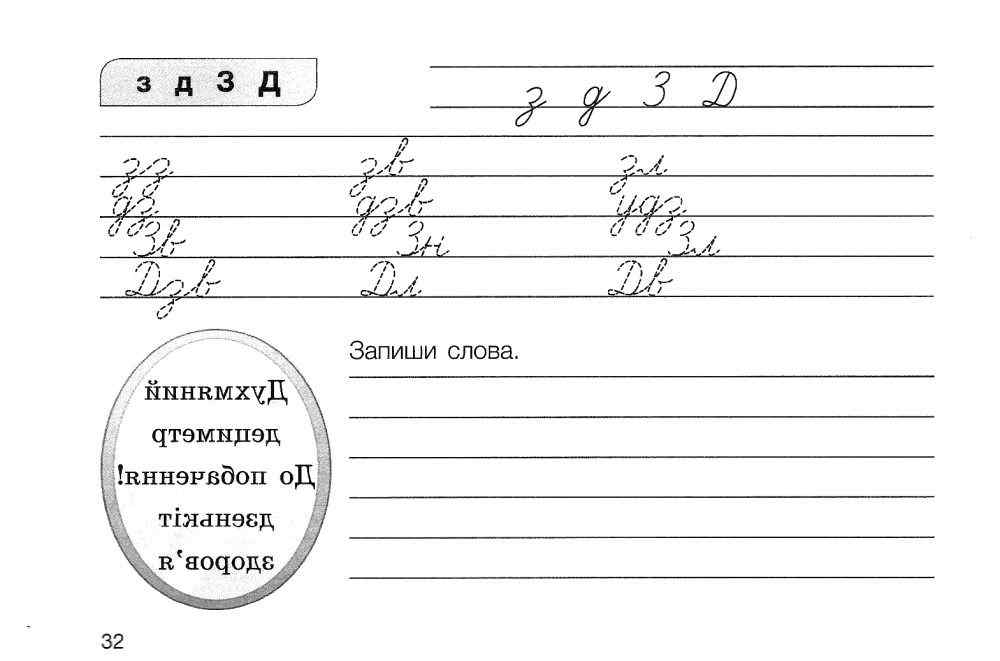 з д З Д
з д З Д
зз зв зл
дз дзв удз
Зв Зн Зл
Дзв Дл Дв
Запиши слова.
Духмяний
дециметр
До побачення!
дзенькіт
здоров'я
32